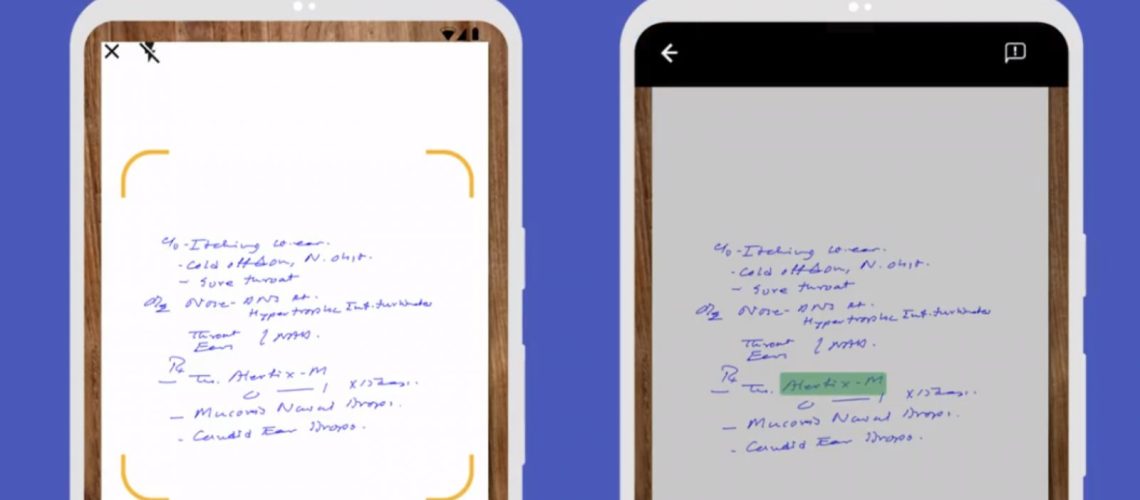 C/o - Itching in ear.
- Cold off & on, N. obst.
- Sore throat
O/E Nose - DNS Rt.
Hypertrophic Inf. turbinates
Throat
Ears } NAD.
Rx
- Tab. Alertix-M
0 — 1 x 15 days.
- Mucomix Nasal Drops.
- Candid Ear Drops.
C/o - Itching in ear.
- Cold off & on, N. obst.
- Sore throat
O/E Nose - DNS Rt.
Hypertrophic Inf. turbinates
Throat
Ears } NAD.
Rx
- Tab. Alertix-M
0 — 1 x 15 days.
- Nasal Drops.
- Candid Ear Drops.